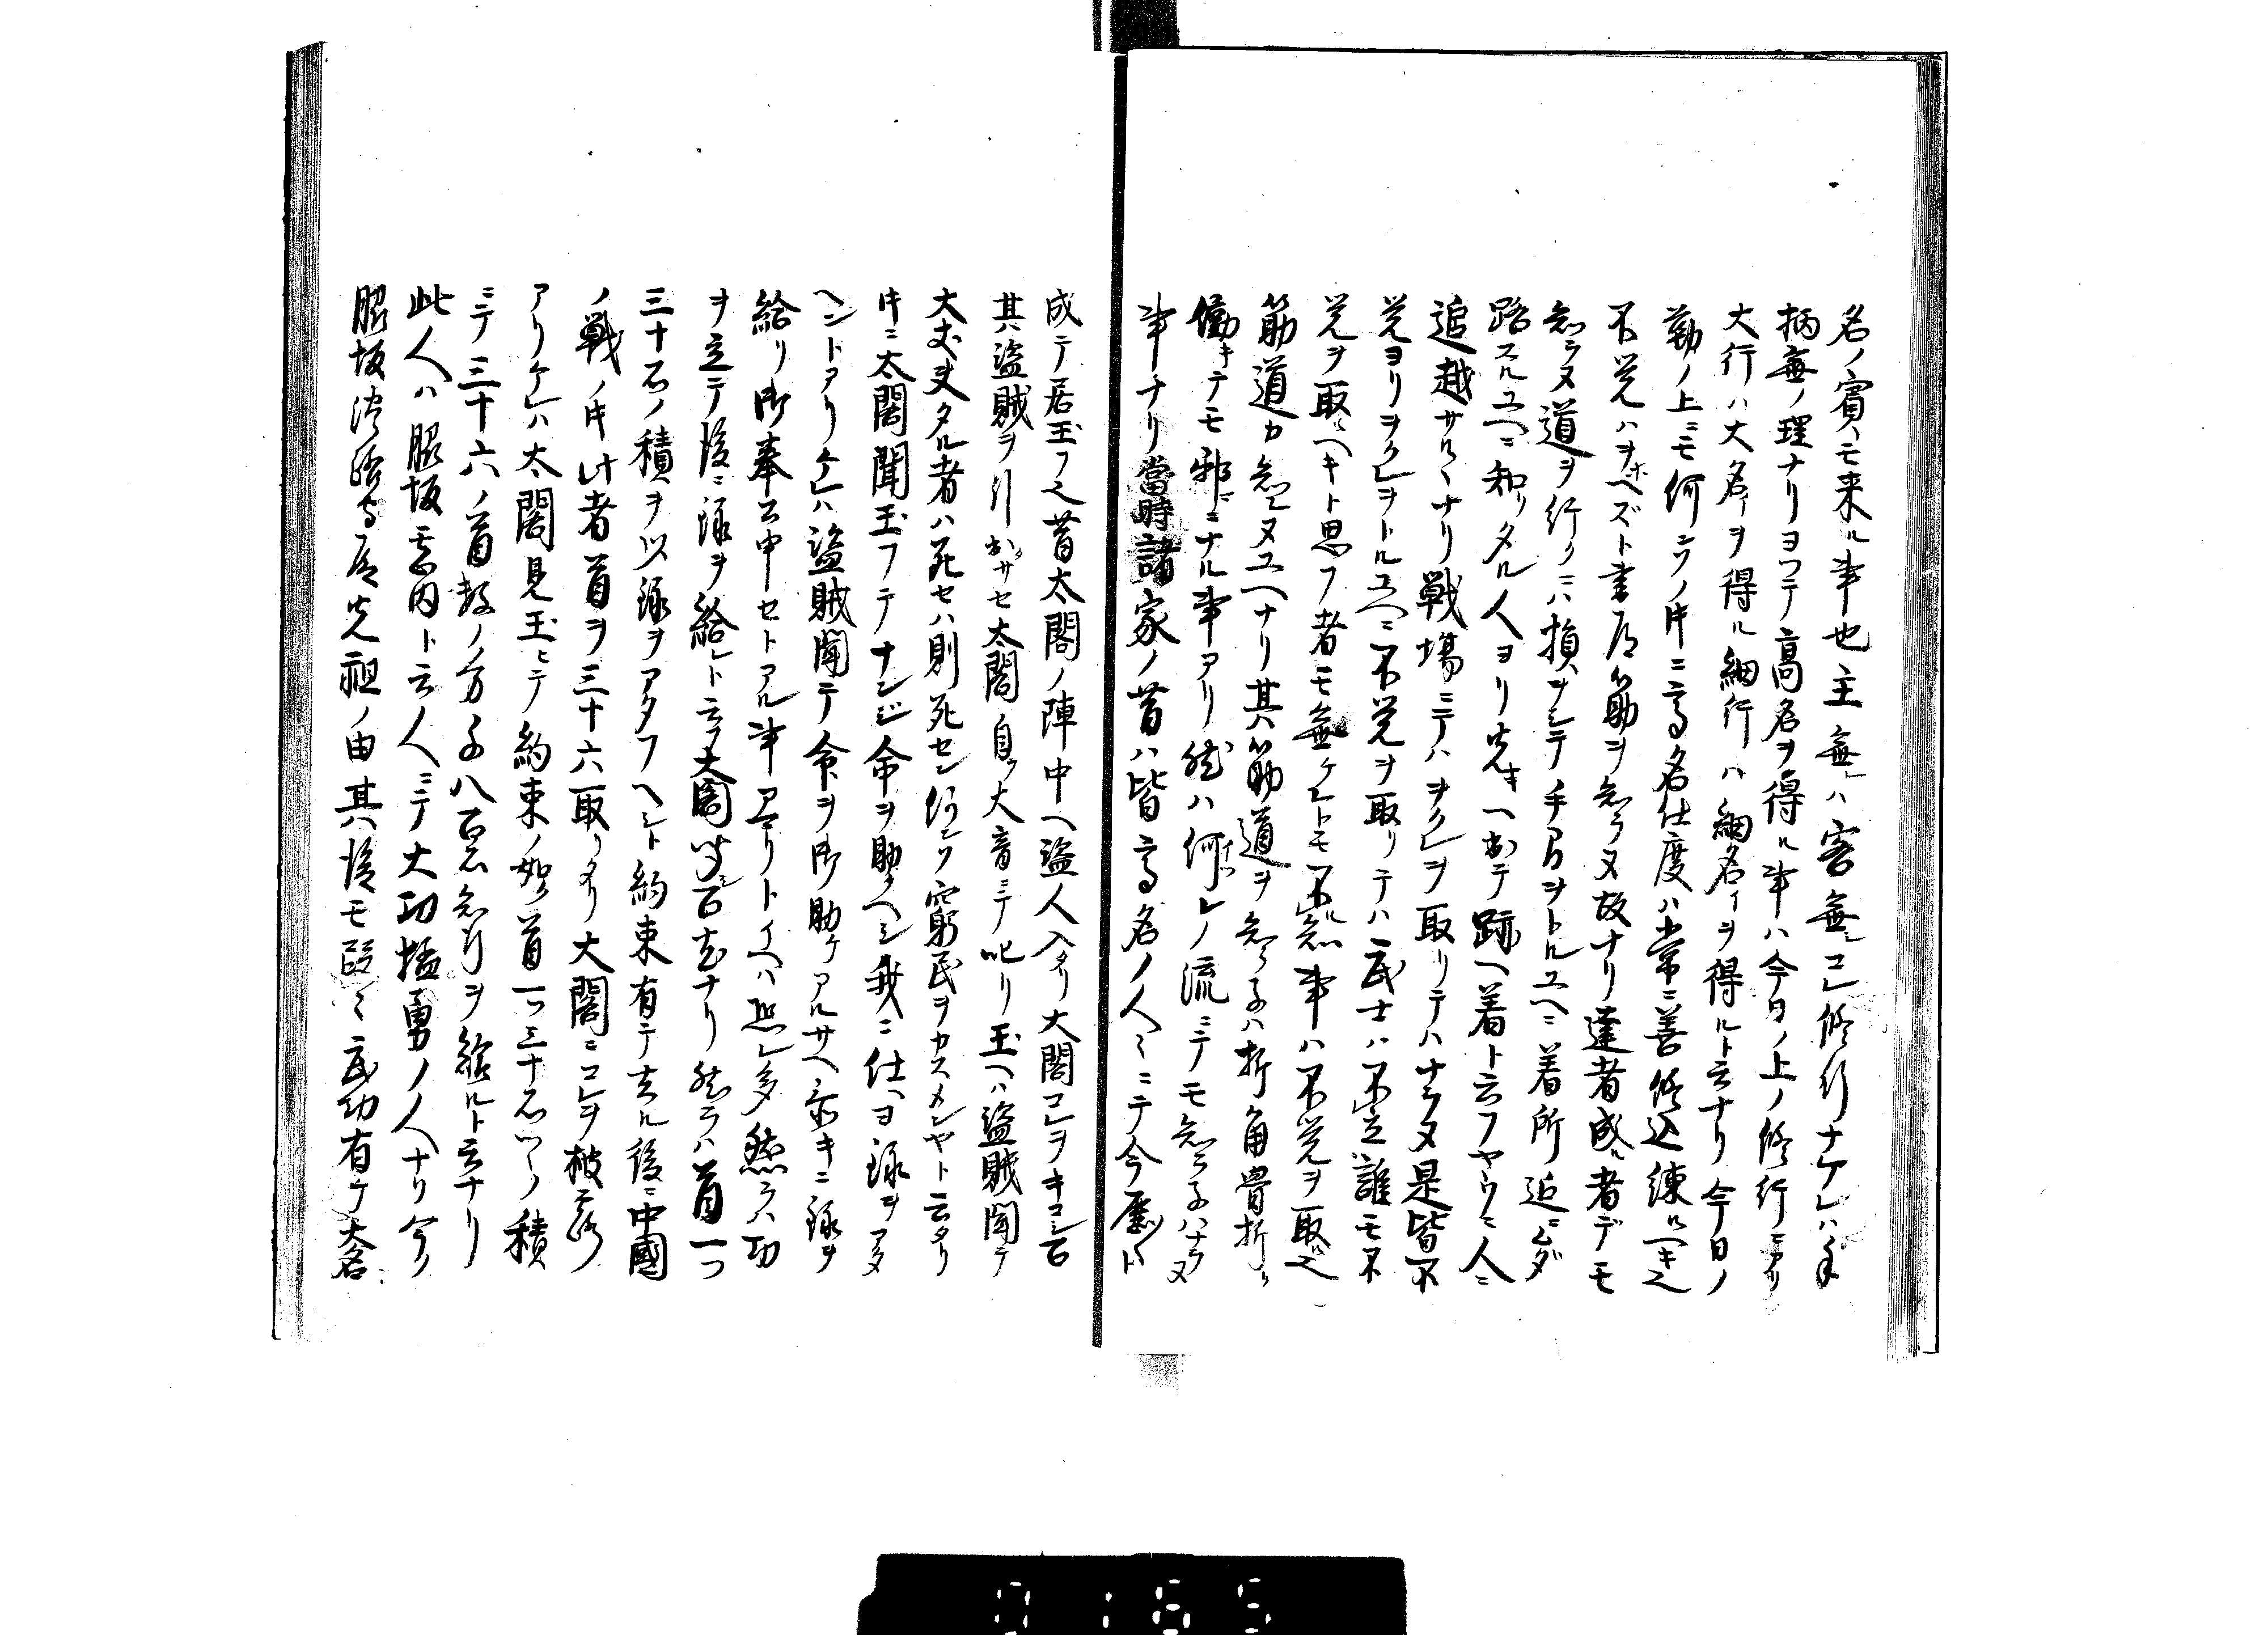 名ノ賓モ来ル事也主無レハ客無シコレ修行ナケレハ手
柄無ノ理ナリヨツテ高名ヲ得ル事ハ今日ノ上ノ修行ニアリ
大行ハ大名ヲ得ル細行ハ細名ヲ得ルト云ナリ今日ノ
勤ノ上ニモ何ニテノ時ニ高名仕度ハ常ニ善修込練ルヘキ也
不覚ハヲホヘズト書尤筋ヲ知ラヌ故ナリ達者成ル者デモ
知ラヌ道ヲ行クニハ損ヲシテ手間ヲトルユヘニ着所近ニムダ
路スルユヘニ知リタル人ヨリ先キヘ出テ跡ヘ着ト云フヤウニ人ニ
追越サルヽナリ戦場ニテハヲクレヲ取リテハナラヌ是皆不
覚ヨリヲクレヲトルユヘニ不覚ヲ取リテハ武士ハ不立誰モ不
覚ヲ取ヘキト思フ者モ無ケレトモ不知事ハ不覚ヲ取也
筋道カ知レヌユヘナリ其筋道ヲ知ラ子ハ折角骨折
働キテモ邪ニナル事アリ然ハ何レノ流ニテモ知ラ子ハナラヌ
事ナリ當時諸家ノ昔ハ皆高名ノ人々ニテ今歴々ト
成テ居玉フ也昔太閤ノ陣中ヘ盗人入タリ大閤コレヲキコシ召
其盗賊ヲ引出サセ太閤自ラ大音ニテ叱リ玉ヘハ盗賊聞テ
大丈夫タル者ハ死セハ則死セン何ンソ窮民ヲカスメンヤト云タリ
時ニ太閤聞玉フテナンジ命ヲ助クヘシ我ニ仕ヘヨ禄ヲアタ
ヘントアリケレハ盗賊聞テ命ヲ御助ケアルサヘ亦キニ禄ヲ
給リ御奉公申セトアル事アマリトイヘハ恐レ多シ然ラハ功
ヲ立テ後ニ禄ヲ給レト云大閤笑百志ナリ然ラハ首一ツ
三十石ノ積ヲ以禄ヲアタフヘシト約束有テ去ル後ニ中國
ノ戦ノ時此者首ヲ三十六取リタリ大閤ニコレヲ披露
アリケレハ太閤見玉ヒテ約束ノ如ク首一ツ三十石ツヽノ積
ニテ三十六ノ首数ノ方千八百石知行ヲ給ルト云ナリ
此人ハ脇坂甚内ト云人ニテ大功猛勇ノ人ナリ今ノ
脇坂淡路守殿先祖ノ由其後モ段々武功有テ大名